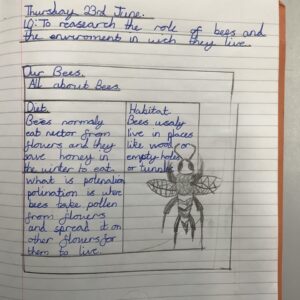 Thursday 23rd June.
LQ: To reasearch the role of bees and
the enviroment in wich they live.
Our Bees.
All about Bees
Diet
Bees normaly
eat nectar from
flowers and they
save honey in
the winter to eat.
what is polination
polination is where
bees take pollen
from flowers
and spread it on
other flowers for
them to live.
Habitat
Bees usaly
live in places
like wood or
empty holes
or tunnels